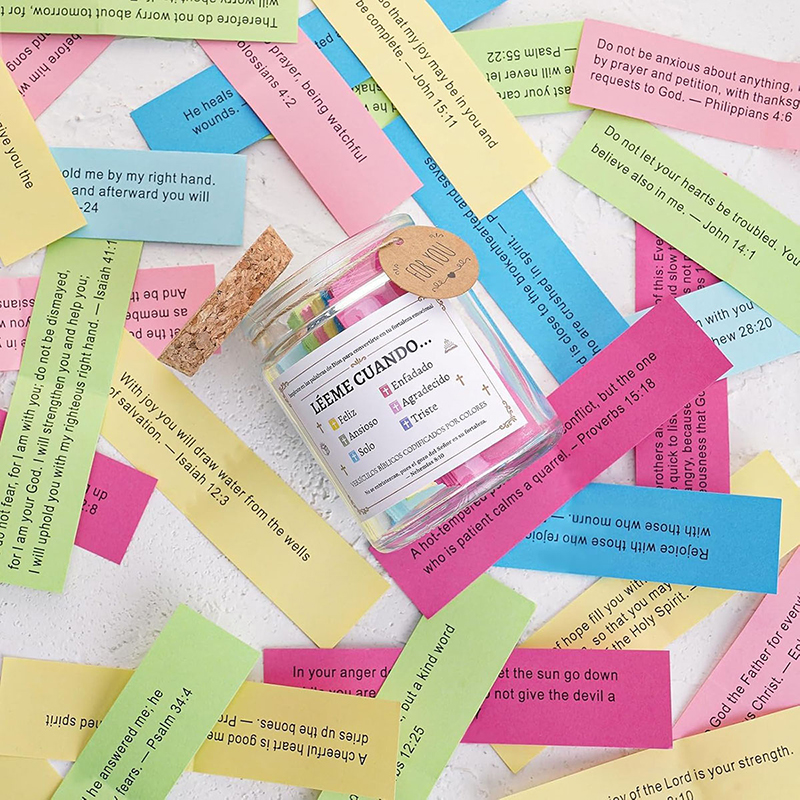 Therefore do not worry about tomorrow, for
will worry about
before him w
and song
give you the
old me by my right hand.
and afterward you will
-24
He heals
wounds. —
prayer, being watchful
olossians 4:2
so that my joy may be in you and
be complete. — John 15:11
ast your care
he will never let
— Psalm 55:22
Do not be anxious about anything,
by prayer and petition, with thanksg
requests to God. — Philippians 4:6
Do not let your hearts be troubled. You
believe also in me. — John 14:1
is close to the brokenhearted and saves
are crushed in spirit. — P
of this: Ev
d slow
with you
hew 28:20
FOR YOU
Inspírate en las palabras de Dios para convertirte en tu fortaleza emocional
LÉEME CUANDO...
Feliz
Ansioso
Solo
Enfadado
Agradecido
Triste
VERSÍCULOS BÍBLICOS CODIFICADOS POR COLORES
No te entristezcas, pues el gozo del Señor es tu fortaleza.
— Nehemías 8:10
And be th
as membe
et the pe
ossians
do not fear, for I am with you; do not be dismayed,
for I am your God. I will strengthen you and help you;
I will uphold you with my righteous right hand. — Isaiah 41:1
With joy you will draw water from the wells
of salvation. — Isaiah 12:3
A hot-tempered p
conflict, but the one
who is patient calms a quarrel. — Proverbs 15:18
rothers a
e quick to lis
angry, because
eousness that G
Rejoice with those who rejoic
with those who mourn. —
of hope fill you with
, so that you may
the Holy Spirit. —
God the Father for every
us Christ. — E
In your anger d
et the sun go down
not give the devil a
but a kind word
12:25
A cheerful heart is good me
dries up the bones. — Pro
hed spirit
he answered me; he
fears. — Psalm 34:4
joy of the Lord is your strength.
8:10